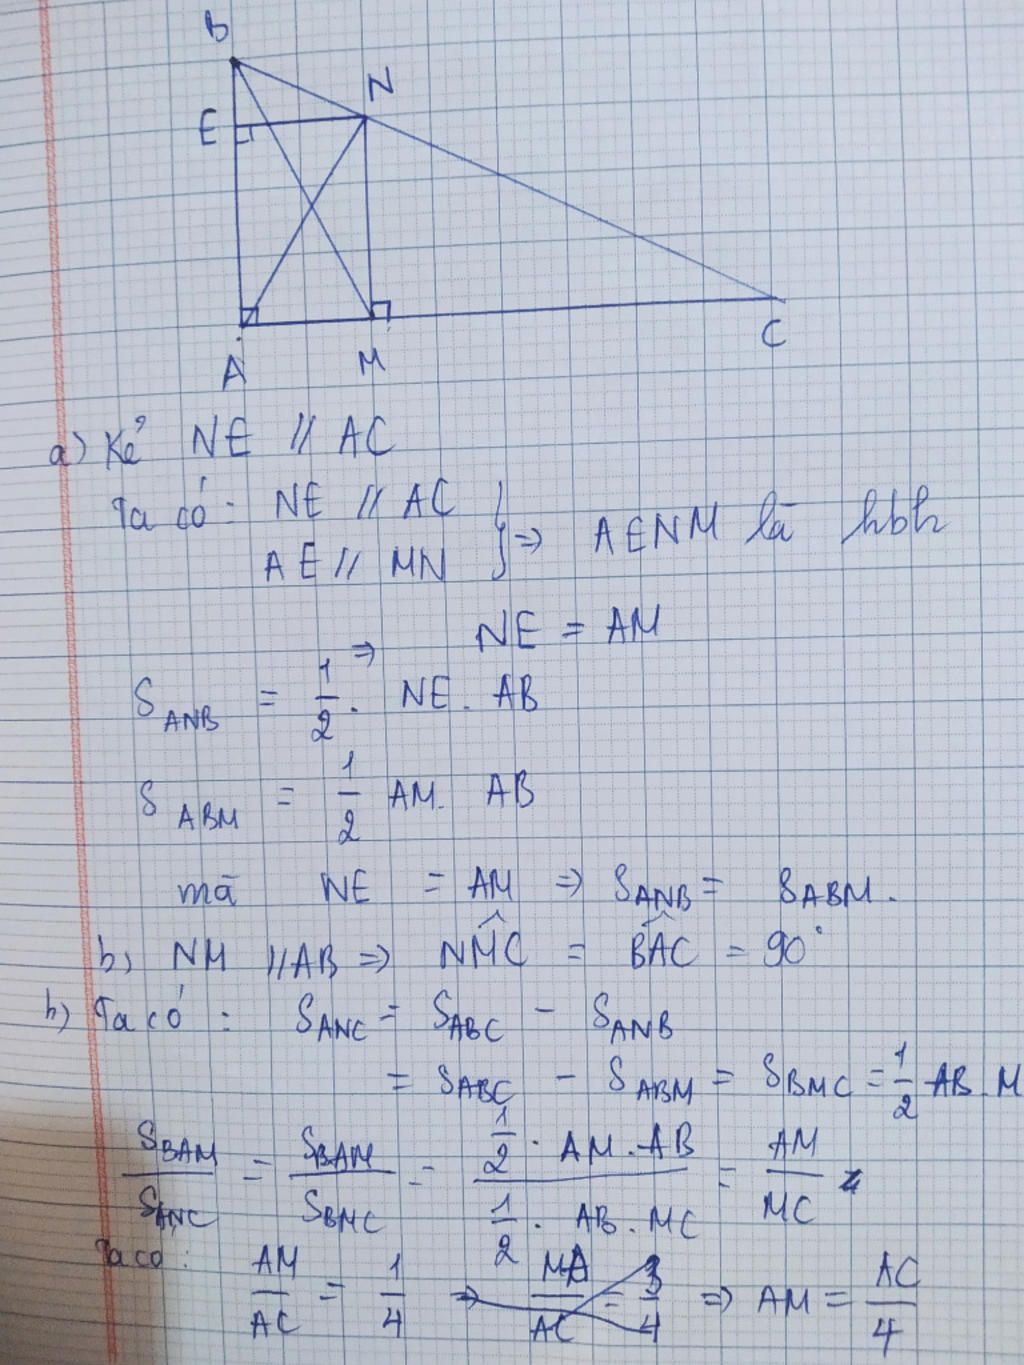 B
N
E
A
M
C
a) Kẻ NE // AC
Ta có: NE // AC
AE // MN } ⇒ AENM là hbh
⇒ NE = AM
S_ANB = 1/2 . NE . AB
S_ABM = 1/2 AM . AB
mà NE = AM ⇒ S_ANB = S_ABM.
b, NM // AB ⇒ NMC^ = BAC^ = 90°
b) Ta có: S_ANC = S_ABC - S_ANB
= S_ABC - S_ABM = S_BMC = 1/2 AB . M
S_BAM / S_ANC = S_BAM / S_BMC = (1/2 . AM . AB) / (1/2 . AB . MC) = AM / MC
Ta có: AM / AC = 1/4 ⇒ AM = AC / 4